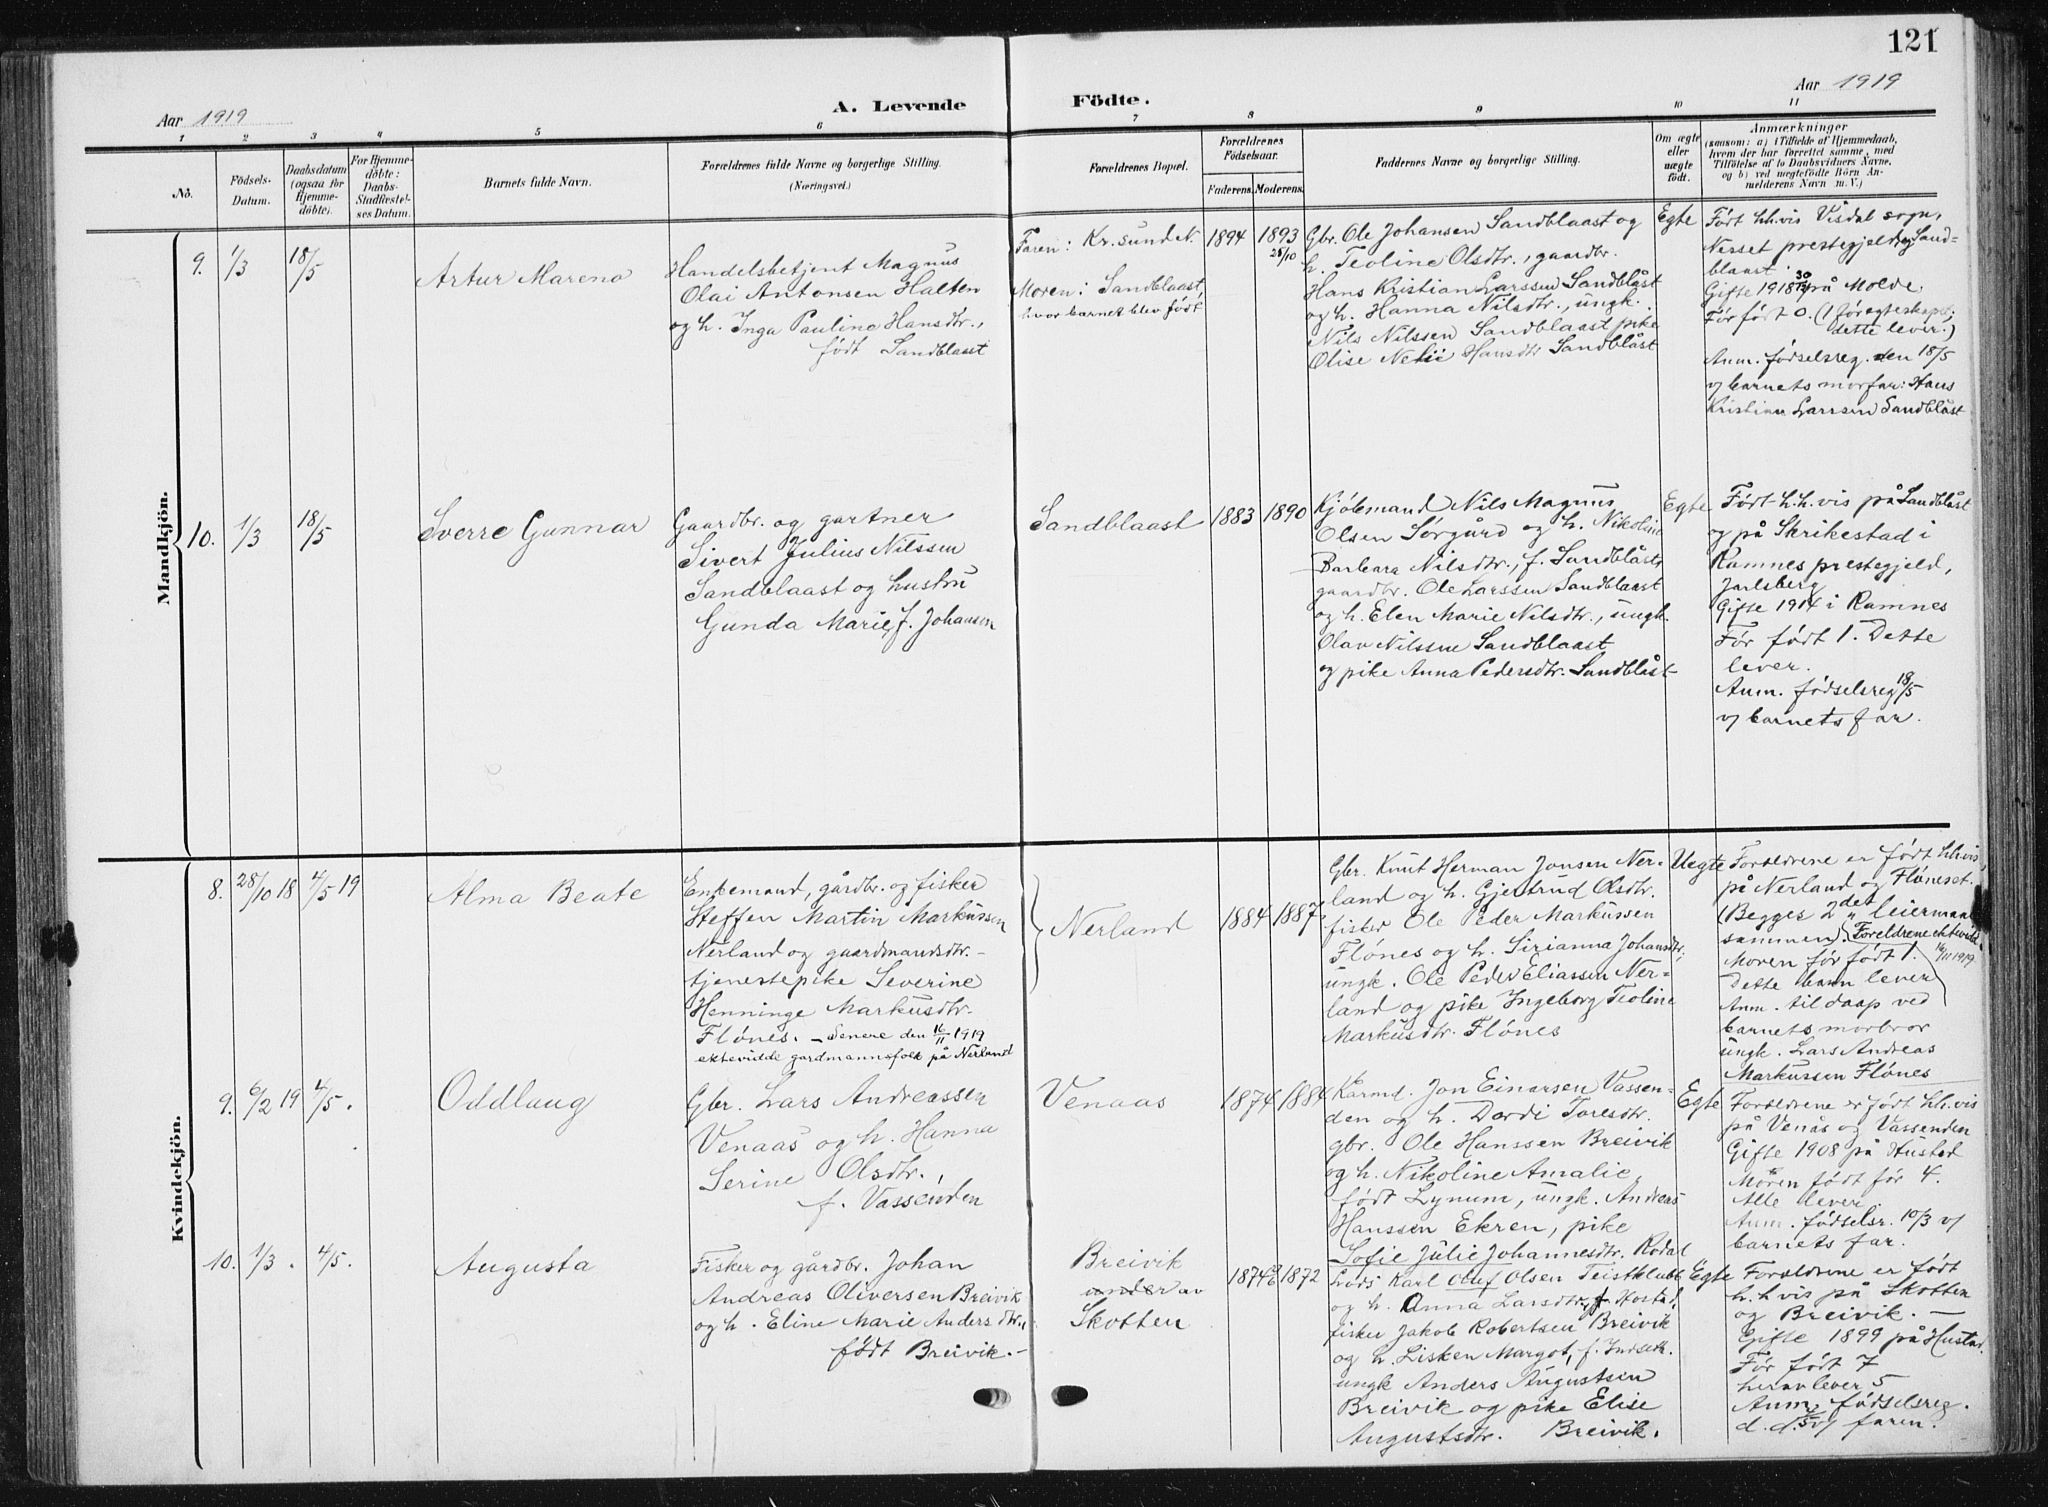 121
Aar 1919
A. Levende Födte.
Aar 1919
1 2 3 4 5 6 7 8 9 10 11
No.
Födsels-
Datum.
Daabsdatum
(ogsaa for
Hjemme-
döbte).
For Hjemme-
döbte:
Daabs-
Stadfæstel-
ses Datum.
Barnets fulde Navn.
Forældrenes fulde Navne og borgerlige Stilling.
(Næringsvei.)
Forældrenes Bopæl.
Forældrenes
Födselsaar.
Faderens. Moderens.
Faddernes Navne og borgerlige Stilling.
Om ægte
eller
uægte
födt.
Anmærkninger
(saasom: a) i Tilfælde af Hjemmedaab,
hvem der har forrettet samme, med
Tilföielse af to Daabsvidners Navne,
og b) ved uægtefödte Börn An-
melderens Navn m. V.)
Mandkjön.
9. 1/3 18/5
Artur Mareno
Handelsbetjent Magnus
Olai Antonsen Halten
og h. Inga Pauline Hansdtr.,
født Sandblaast
Faren: Kr.sund N.
Moren: Sandblaast,
hvor barnet blev født
1894 1893
28/10
Gbr. Ole Johansen Sandblaast og
h. Teoline Olsdtr., gaardbr.
Hans Kristian Larssen Sandblåst
og h. Hanna Nilsdtr., ungk.
Nils Nilssen Sandblaast pike
Olise Hansdtr Sandblåst
Egte
Født hh.vis Visdal sogn,
Nesset prestegjeld og Sand-
blaast.
Gifte 1918 på Molde.
Før født 0. (1 før egteskapet;
dette lever.)
Anm. fødselsreg. den 18/5
v/ barnets morfar: Hans
Kristian Larssen Sandblåst
10. 1/3 18/5
Sverre Gunnar
Gaardbr. og gartner
Sivert Julius Nilssen
Sandblaast og hustru
Gunda Marie, f. Johansen
Sandblaast
1883 1890
Kjøbmand Nils Magnus
Olsen Sørgård og h. Nikoline
Barbara Nilsdtr., f. Sandblåst,
gaardbr. Ole Larssen Sandblaast
og h. Elen Marie Nilsdtr., ungk.
Olav Nilssen Sandblaast
og pike Anna Pedersdtr. Sandblåst
Egte
Født h.h.vis på Sandblåst
og på Skrikestad i
Ramnes prestegjeld,
Jarlsberg
Gifte 1914 i Ramnes
Før født 1. Dette
lever.
Anm. fødselsreg 18/5
v/ barnets far.
Kvindekjön.
8. 28/10 18 4/5 19
Alma Beate
Enkemand, gårdbr. og fisker
Steffen Martin Markussen
Nerland og gaardmandsdtr.-
tjenestepike Severine
Henninge Markusdtr.
Flønes. - Senere den 16/11 1919
ektevidde gardmannsfolk på Nerland
Nerland
1884 1887
Gbr. Knut Herman Jonsen Ner-
land og h. Gjertrud Olsdtr.
fisker Ole Peder Markussen
Flønes og h. Sirianna Johansdtr,
ungk. Ole Peder Eliassen Ner-
land og pike Ingeborg Teoline
Markusdtr. Flønes
Uegte
Foreldrene er født hh.vis
på Nerland og Fløneset.
(Begges 2det leiermaal
sammen). Foreldrene ektevidd. 16/11 1919
Moren før født 1.
Dette barn lever
Anm. til daap ved
barnets morbror
ungk. Lars Andreas
Markussen Flønes
9. 6/2 19 4/5.
Oddlaug
Gbr. Lars Andreassen
Venaas og h. Hanna
Serine Olsdtr.,
f. Vassenden
Venaas
1874 1884
Kårmd. Jon Einarsen Vassen-
den og h. Dordi Toresdtr.
gbr. Ole Hanssen Breivik
og h. Nikoline Amalie,
født Lynum, ungk. Andreas
Hanssen Ekren, pike
Sofie Julie Johannesdtr. Rødal
Egte
Foreldrene er født hh.vis
på Venås og Vassenden
Gifte 1908 på Hustad
Moren født før 4.
Alle lever.
Anm. fødselsr. 10/3 v/
barnets far.
10. 1/3. 4/5.
Augusta
Fisker og gårdbr. Johan
Andreas Oliversen Breivik
og h. Eline Marie Andersdtr.,
født Breivik.-
Breivik
under av
Skotten
1874 1872
Lods Karl Oluf Olsen Teistklubb
og h. Anna Larsdtr, f. Hostad,
fisker Jakob Robertsen Breivik
og h. Lisken Margot, f. Indset.
ungk Anders Augustsen
Breivik og pike Elise
Augustsdtr. Breivik.
Egte
Foreldrene er født
h.hvis på Skotten
og Breivik. —
Gifte 1899 på Hustad.
Før født 7
herav lever 5
Anm. fødselsreg.
d. d. 4/5 v/ faren.